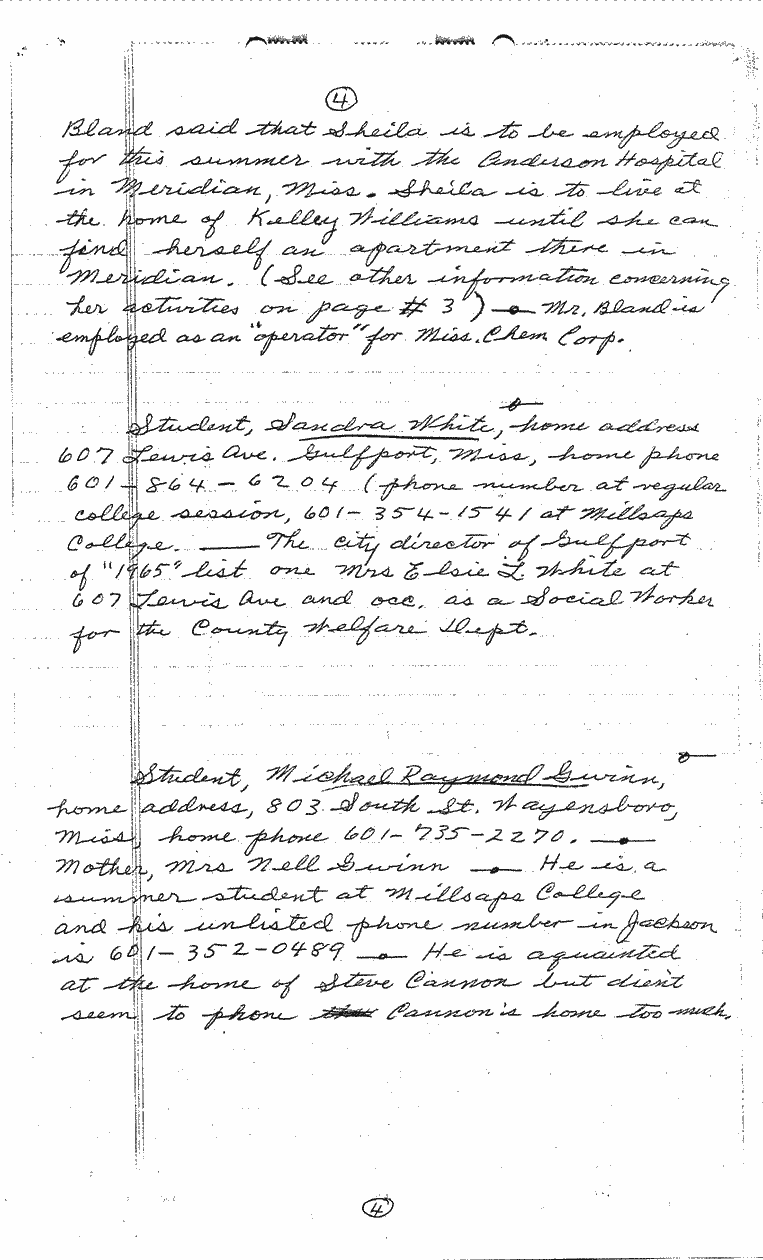 4
Bland said that Sheila is to be employed
for this summer with the Anderson Hospital
in Meridian, Miss. Sheila is to live at
the home of Kelley Williams until she can
find herself an apartment there in
Meridian. (See other information concerning
her activities on page # 3 ) — Mr. Bland is
employed as an "operator" for Miss. Chem Corp.
Student, Sandra White, home address
607 Lewis Ave. Gulfport, Miss, home phone
601-864-6204 (phone number at regular
college session, 601-354-1541 at Millsaps
College. — The city director of Gulfport
of "1965" list one Mrs Elsie L White at
607 Lewis Ave and occ. as a Social Worker
for the County Welfare Dept.
Student, Michael Raymond Gwinn,
home address, 803 South St. Wayensboro,
Miss, home phone 601-735-2270. —
Mother, Mrs Nell Gwinn — He is a
summer student at Millsaps College
and his unlisted phone number in Jackson
is 601-352-0489 — He is aquainted
at the home of Steve Cannon but dient
seem to phone Cannon's home too much.
4